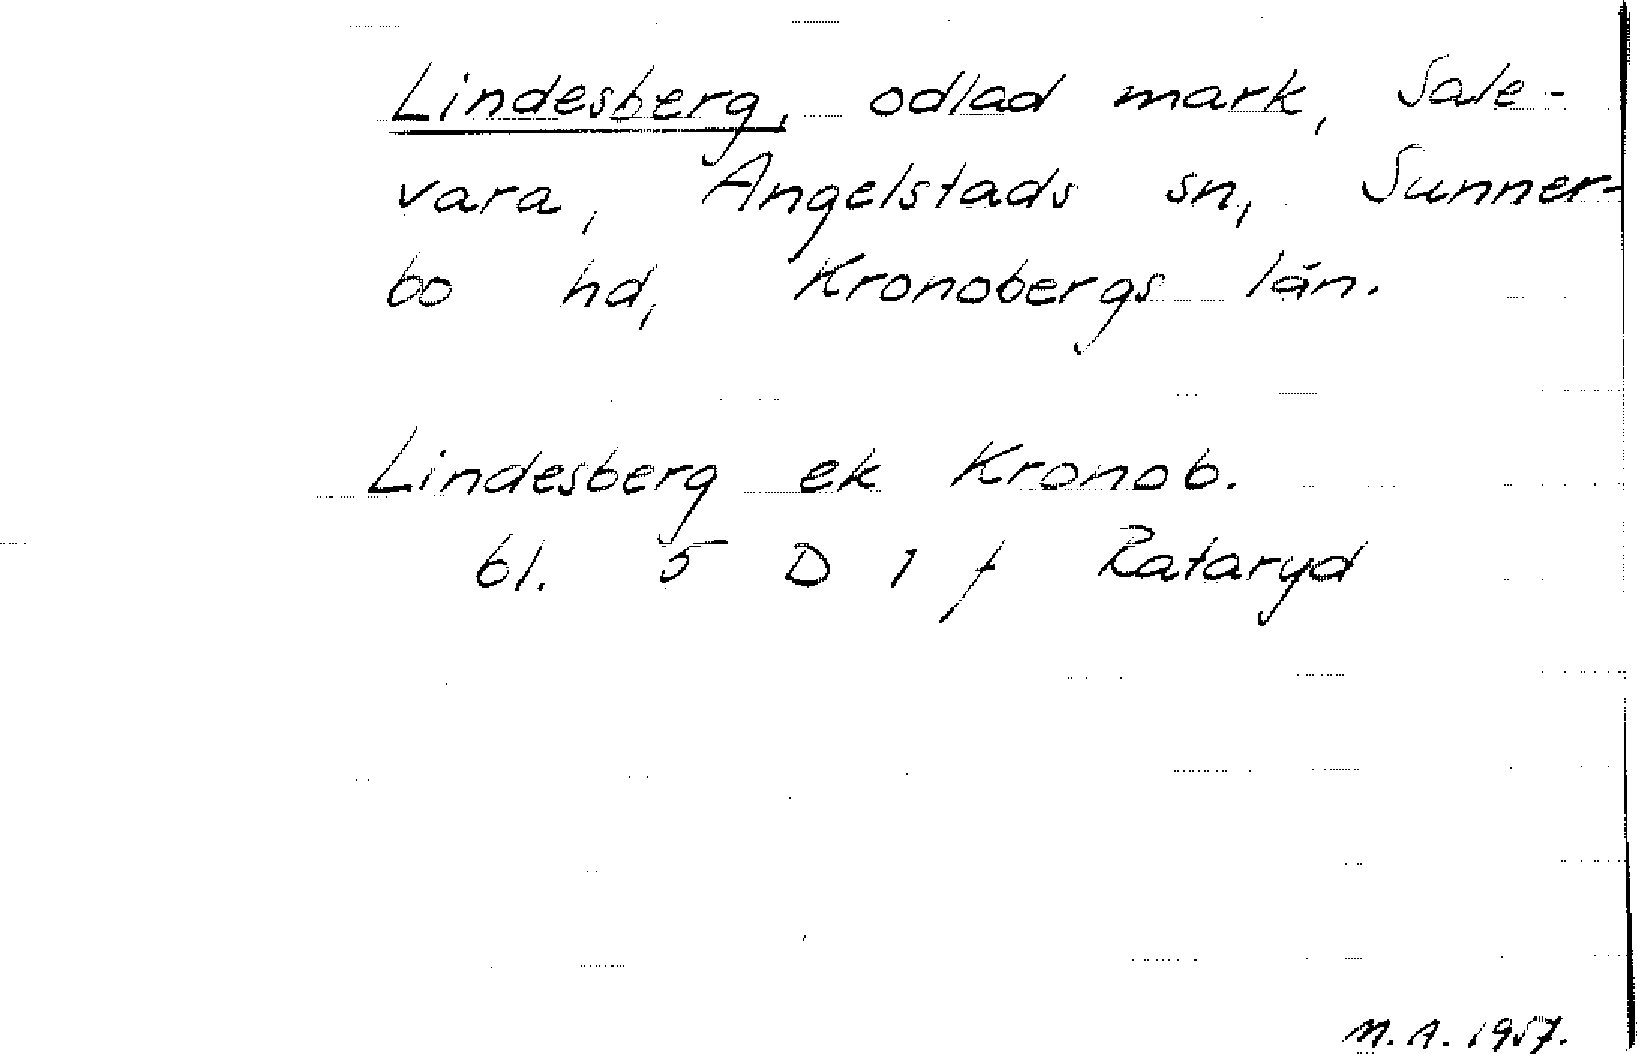 Lindesberg, odlad mark, Sale-
vara, Angelstads sn, Sunner-
bo hd, Kronobergs län.
Lindesberg ek Kronob.
bl. 5 D 1 f Rataryd
M.A. 1957.